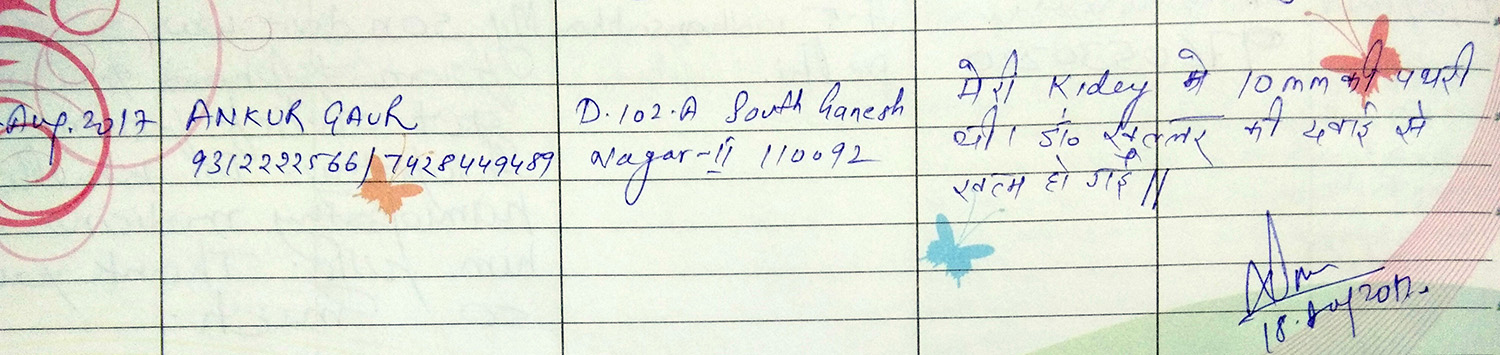 Aug. 2017 ANKUR GAUR D-102-A South Ganesh मेरी Kidey मे 10mm की पथरी
9312222566/7428449489 Nagar-II 110092 थी। डॉ० की दवाई से
खत्म हो गई॥
18. Aug 2017.